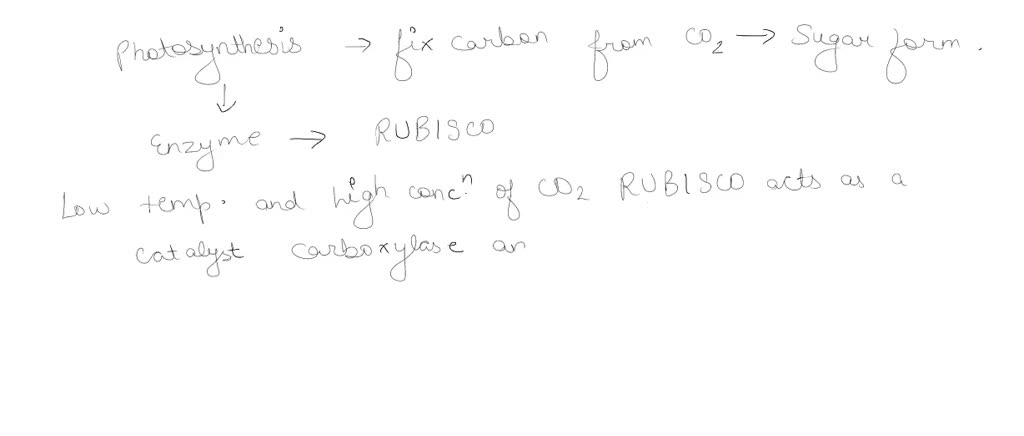 Photosynthesis → fix carbon from CO₂ → Sugar form.
↓
Enzyme → RUBISCO
Low temp. and high concⁿ. of CO₂ RUBISCO acts as a
catalyst carboxylase an